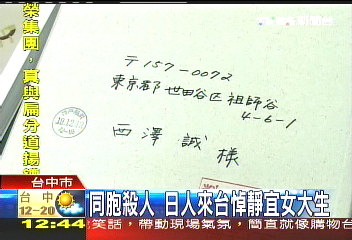 榮集團，真與扁分道揚鑣
新聞台
〒157-0072
東京都世田谷区祖師谷
4-6-1
西澤誠様
台中市
台中
12-20
同胞殺人 日人來台悼靜宜女大生
12:44
笑話，帶動現場氣氛，簡直就像購物台